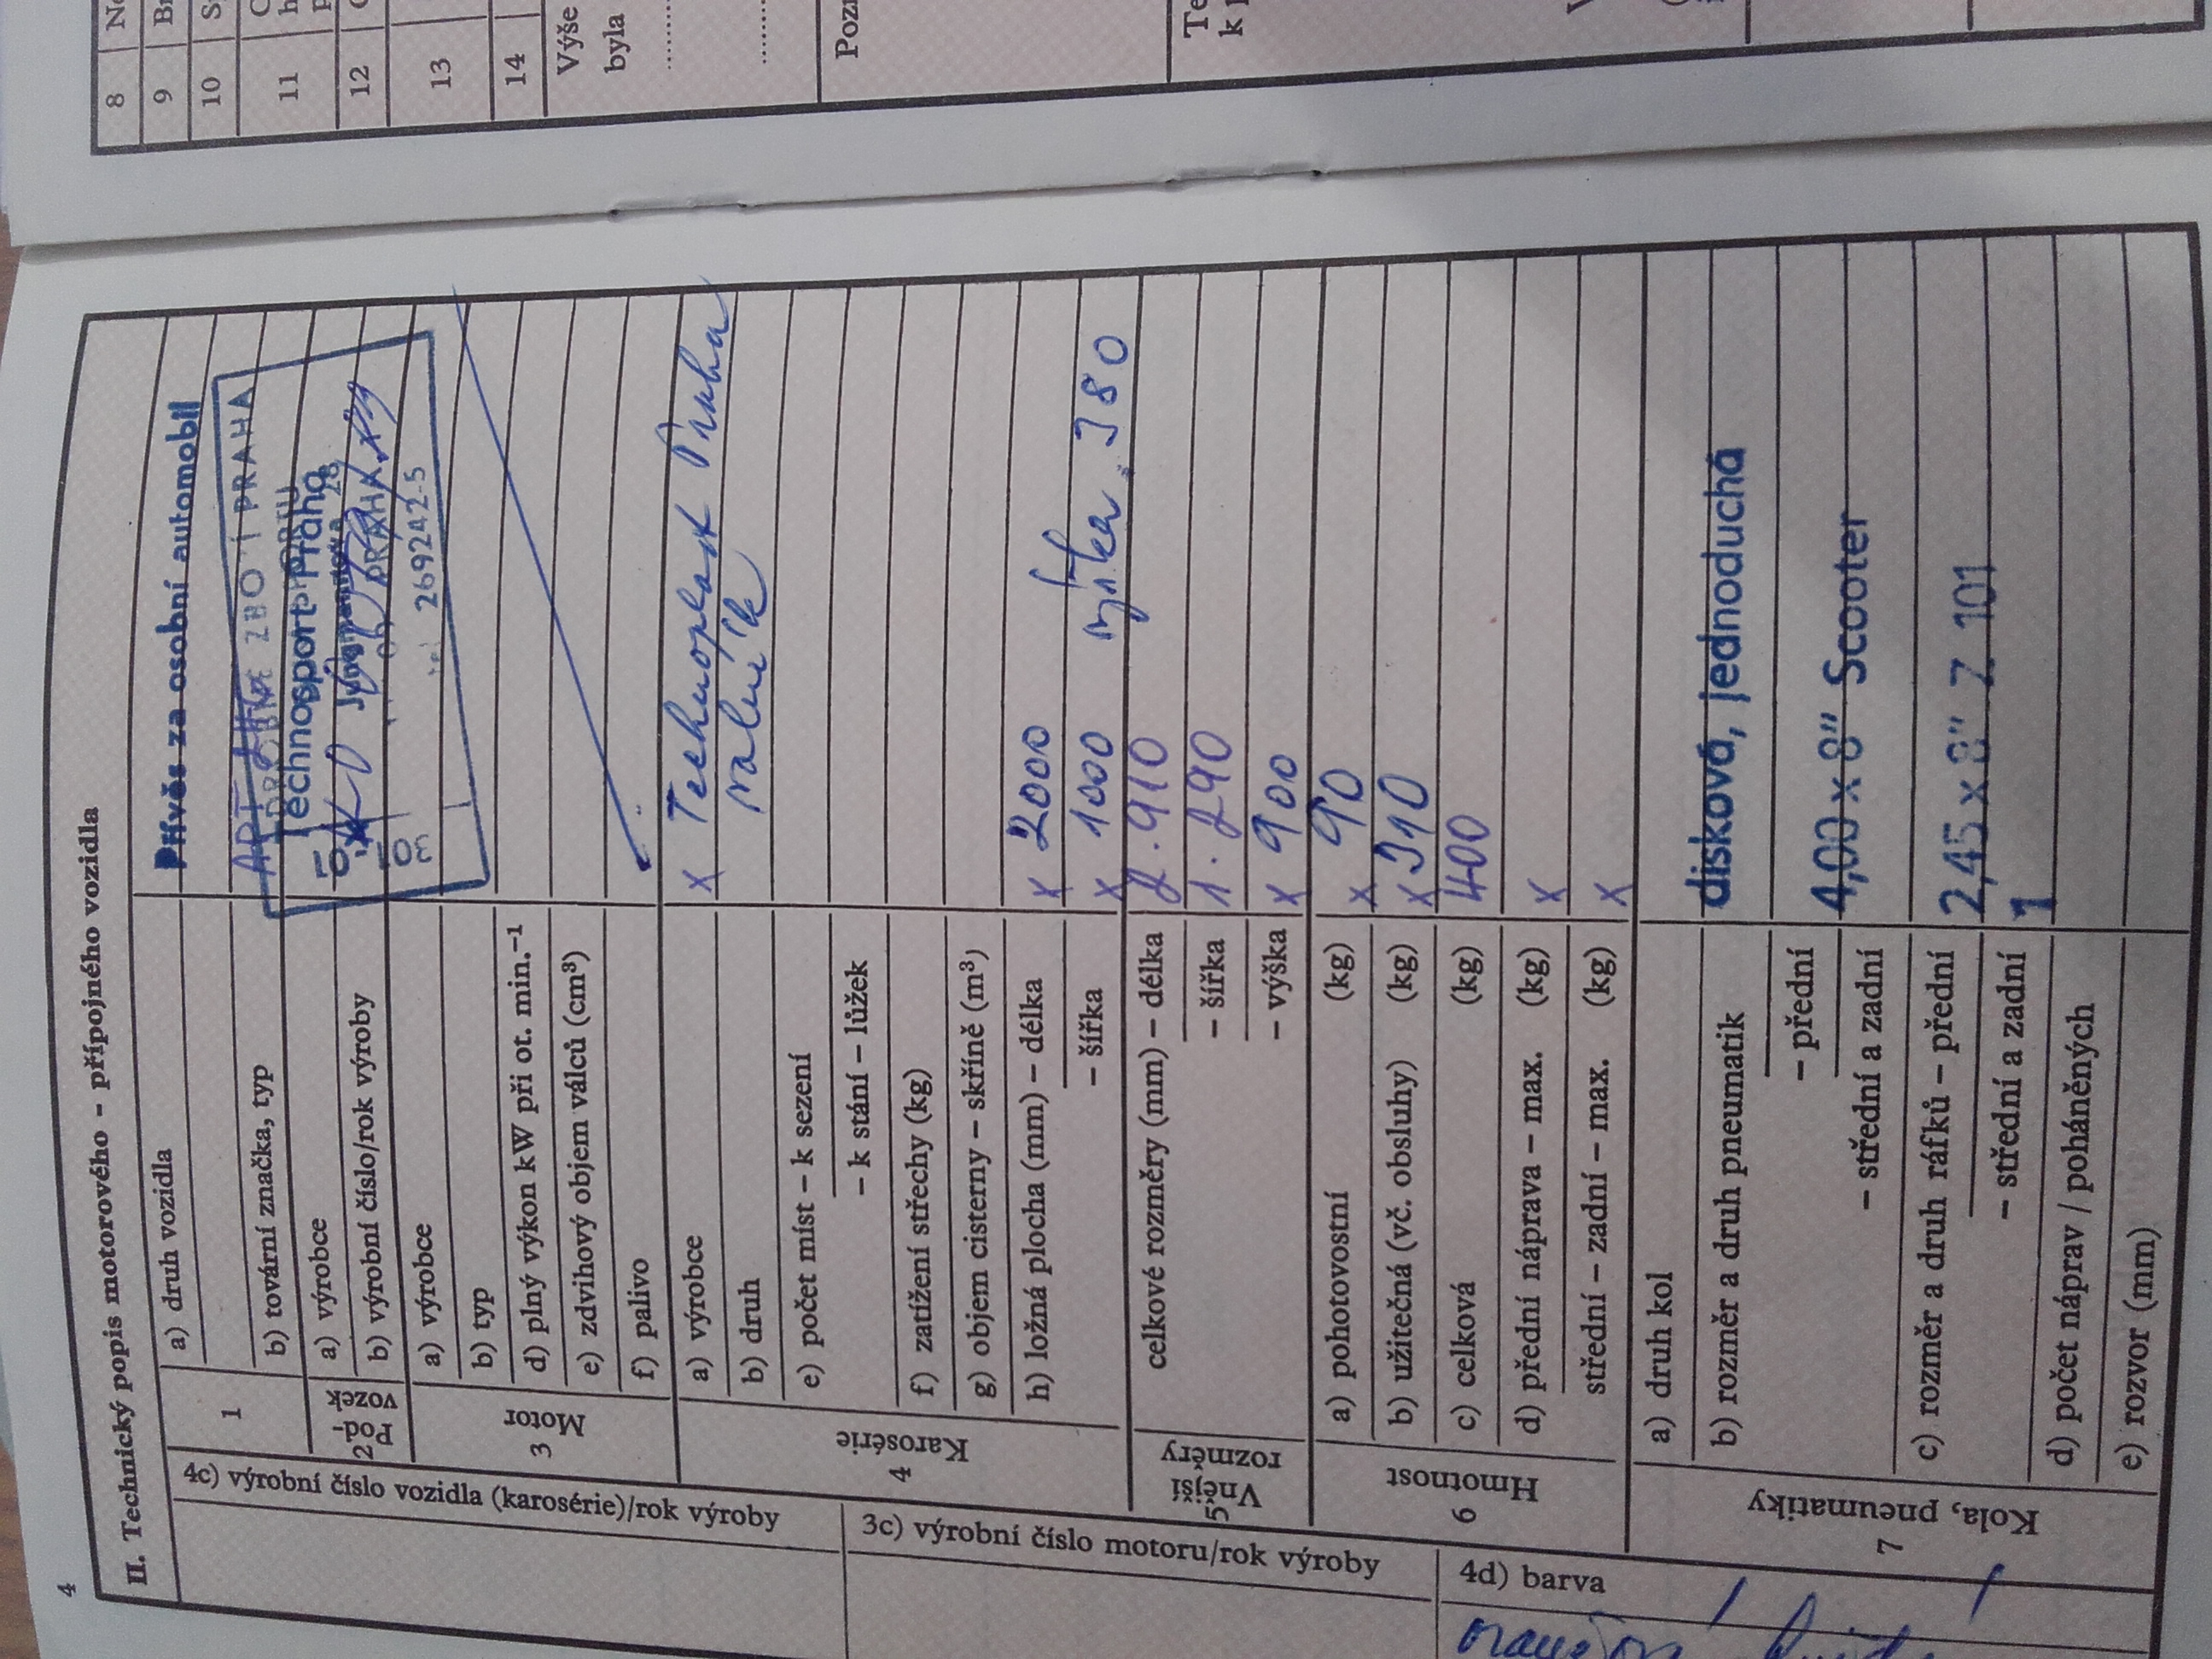 8 | No
9 | Br
10 | S
11
12
13
14
Výše
byla
Pozn
Te
k p
4
II. Technický popis motorového – přípojného vozidla
1
a) druh vozidla Přívěs za osobní automobil
b) tovární značka, typ
ZBOŽÍ PRAHA
2 Pod-
vozek
a) výrobce Technosport Praha
b) výrobní číslo/rok výroby
PRAHA
269242-5
3 Motor
a) výrobce
b) typ
d) plný výkon kW při ot. min.⁻¹
e) zdvihový objem válců (cm³)
f) palivo
4 Karosérie
a) výrobce x Technoplast Praha
b) druh valník
e) počet míst – k sezení
– k stání – lůžek
f) zatížení střechy (kg)
g) objem cisterny – skříně (m³)
h) ložná plocha (mm) – délka x 2000
– šířka x 1000 výška. 380
5 Vnější
rozměry
celkové rozměry (mm) – délka 2.910
– šířka 1.290
– výška x 900
6 Hmotnost
a) pohotovostní (kg) x 90
b) užitečná (vč. obsluhy) (kg) x 310
c) celková (kg) 400
d) přední náprava – max. (kg) x
střední – zadní – max. (kg) x
7 Kola, pneumatiky
a) druh kol disková, jednoduchá
b) rozměr a druh pneumatik
– přední
– střední a zadní 4,00 x 8" Scooter
c) rozměr a druh ráfků – přední
– střední a zadní 2,45 x 8" Z 101
d) počet náprav / poháněných 1
e) rozvor (mm)
4c) výrobní číslo vozidla (karosérie)/rok výroby
3c) výrobní číslo motoru/rok výroby
4d) barva